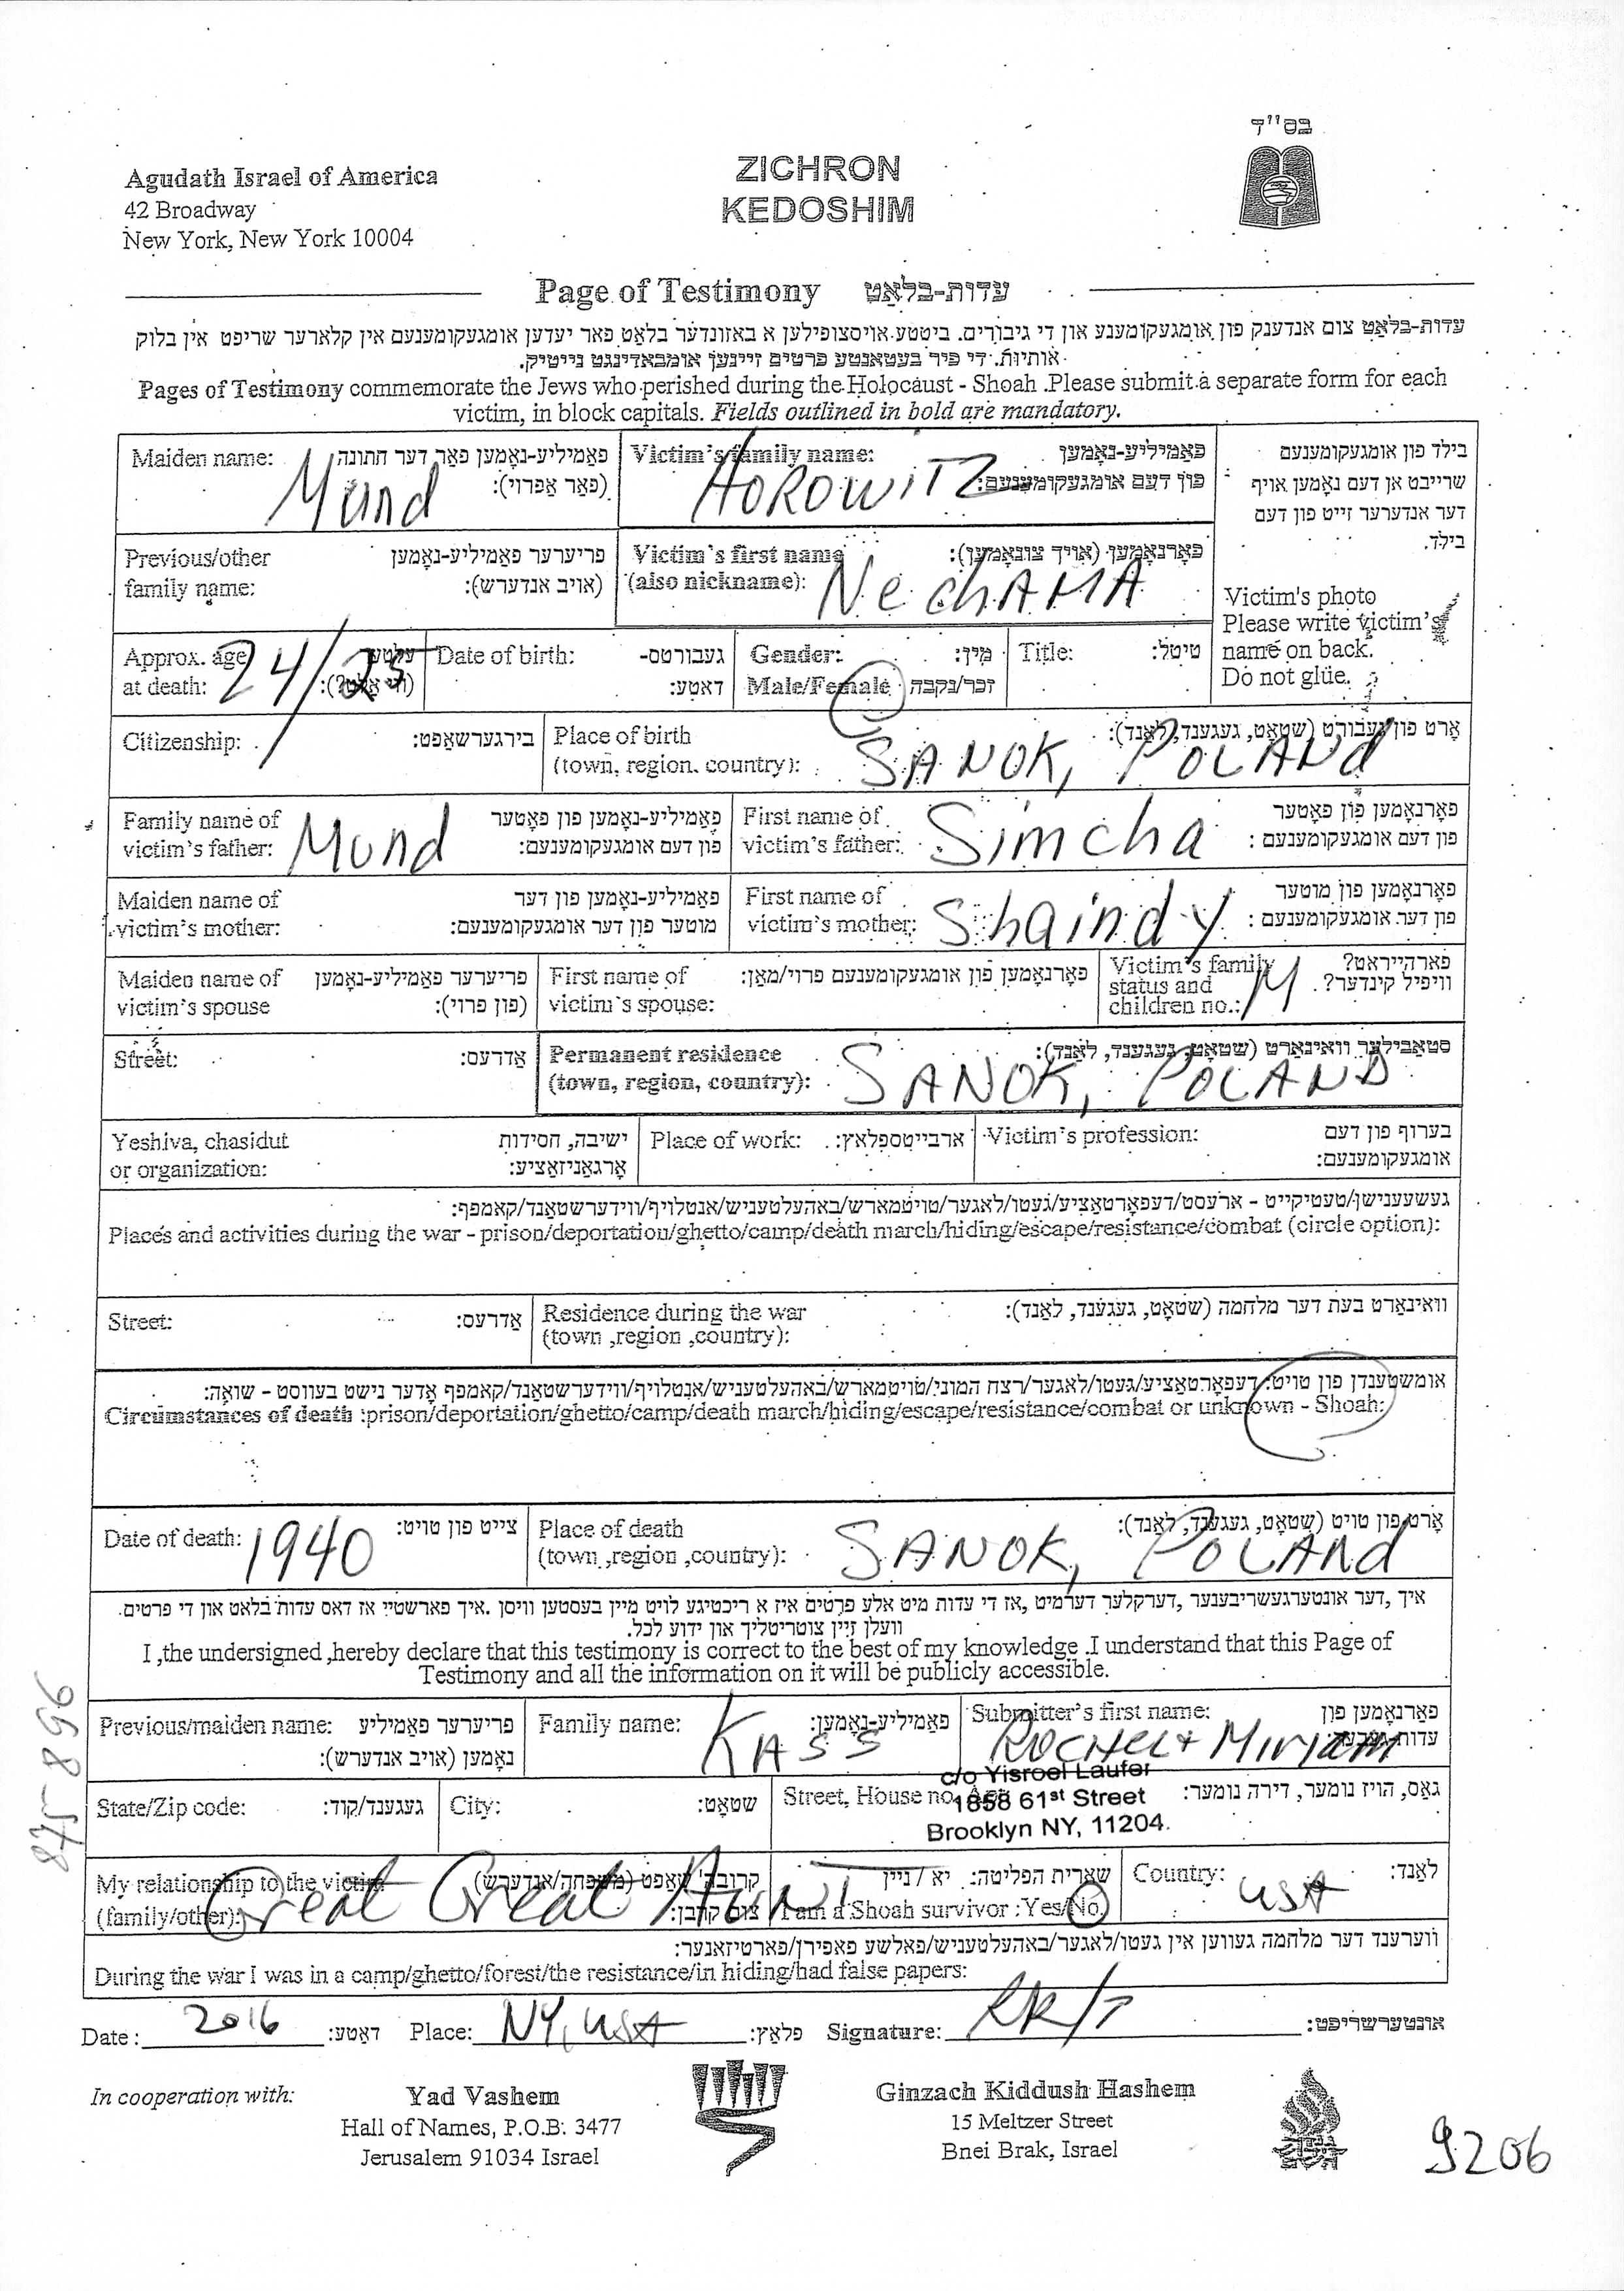 בס"ד
Agudath Israel of America
42 Broadway
New York, New York 10004
ZICHRON
KEDOSHIM
Page of Testimony עדות-בלאַט
עדות-בלאַט צום אנדענק פון אומגעקומענע און די גיבורים. ביטע אויסצופילן א באזונדער בלאַט פאר יעדען אומגעקומענעם אין קלארער שריפט אין בלוק
אותיות. די פיר בעטאָנטע פרטים זיינען אומבאדינגט נייטיק.
Pages of Testimony commemorate the Jews who perished during the Holocaust - Shoah .Please submit a separate form for each
victim, in block capitals. Fields outlined in bold are mandatory.
Maiden name: Mund פאַמיליע-נאָמען פאַר דער חתונה
(פאַר אַפרוי):
Victim's family name: HOROWITZ פאַמיליע-נאָמען
פון דעם אומגעקומענעם:
בילד פון אומגעקומענעם
שרייבט אן דעם נאָמען אויף
דער אנדערער זייט פון דעם
בילד.
Victim's photo
Please write victim's
name on back.
Do not glue.
Previous/other פריערער פאַמיליע-נאָמען
family name: (אויב אנדערש):
Victim's first name פאָרנאָמען (אויך צונאָמען):
(also nickname): NechAMA
Approx. age עלטער
at death: 24/25 (ווי אַלט?):
Date of birth: געבורטס-
דאַטע:
Gender: מין:
Male/Female זכר/נקבה
Title: טיטל:
Citizenship: בירגערשאַפט:
Place of birth אָרט פון געבורט (שטאָט, געגענד, לאַנד):
(town, region. country): SANOK, POLANd
Family name of פאַמיליע-נאָמען פון פאָטער
victim's father: Mund פון דעם אומגעקומענעם:
First name of פאָרנאָמען פון פאָטער
victim's father: Simcha פון דעם אומגעקומענעם :
Maiden name of פאַמיליע-נאָמען פון דער
victim's mother: מוטער פון דער אומגעקומענעם:
First name of פאָרנאָמען פון מוטער
victim's mother: Shaindy פון דער אומגעקומענעם :
Maiden name of פריערער פאַמיליע-נאָמען
victim's spouse (פון פרוי):
First name of פאָרנאָמען פון אומגעקומענעם פרוי/מאַן:
victim's spouse:
Victim's family פארהייראט?
status and וויפיל קינדער?
children no.: M
Street: אַדרעס:
Permanent residence סטאַבילער וואוינאָרט (שטאָט, געגענד, לאַנד):
(town, region, country): SANOK, POLAND
Yeshiva, chasidut ישיבה, חסידות
or organization: אָרגאַניזאַציע:
Place of work: ארבייטספלאַץ:
Victim's profession: בערוף פון דעם
אומגעקומענעם:
געשעענישן/טעטיקייט - ארעסט/דעפּאָרטאַציע/געטו/לאַגער/טויטמאַרש/באַהעלטעניש/אַנטלויף/ווידערשטאַנד/קאַמפף:
Places and activities during the war - prison/deportation/ghetto/camp/death march/hiding/escape/resistance/combat (circle option):
Street: אַדרעס:
Residence during the war וואוינאָרט בעת דער מלחמה (שטאָט, געגענד, לאַנד):
(town ,region ,country):
אומשטענדן פון טויט: דעפּאָרטאַציע/געטו/לאַגער/רצח המוני/טויטמאַרש/באַהעלטעניש/אַנטלויף/ווידערשטאַנד/קאַמפף אָדער נישט בעווסט - שואה:
Circumstances of death :prison/deportation/ghetto/camp/death march/hiding/escape/resistance/combat or unknown - Shoah:
Date of death: 1940 צייט פון טויט:
Place of death אָרט פון טויט (שטאָט, געגענד, לאַנד):
(town ,region ,country): SANOK, POLANd
איך ,דער אונטערגעשריבענער ,דערקלער דערמיט ,אז די עדות מיט אלע פרטים איז א ריכטיגע לויט מיין בעסטען וויסן .איך פארשטיי אז דאס עדות בלאט און די פרטים
וועלן זיין צוטריטליך און ידוע לכל.
I ,the undersigned ,hereby declare that this testimony is correct to the best of my knowledge .I understand that this Page of
Testimony and all the information on it will be publicly accessible.
Previous/maiden name: פריערער פאַמיליע
נאָמען (אויב אנדערש):
Family name: KASS פאַמיליע-נאָמען:
Submitter's first name: פאָרנאָמען פון
ROCHEL + Miriam
State/Zip code: געגענד/קוד:
City: שטאָט:
Street, House no גאַס, הויז נומער, דירה נומער:
c/o Yisroel Laufer
1858 61st Street
Brooklyn NY, 11204.
My relationship to the victim קרובה'שאַפט (משפּחה/אנדערש)
(family/other): Great Great Aunt צום קרבן:
שארית הפליטה: יא / ניין
I am a Shoah survivor :Yes/No.
Country: USA לאַנד:
ווערענד דער מלחמה געווען אין געטו/לאַגער/באַהעלטעניש/פאַלשע פּאַפּירן/פּאַרטיזאַנער:
During the war I was in a camp/ghetto/forest/the resistance/in hiding/had false papers:
Date : 2016 דאַטע: Place: NY, USA פּלאַץ: Signature: אונטערשריפט:
In cooperation with:
Yad Vashem
Hall of Names, P.O.B. 3477
Jerusalem 91034 Israel
Ginzach Kiddush Hashem
15 Meltzer Street
Bnei Brak, Israel
9206
875896